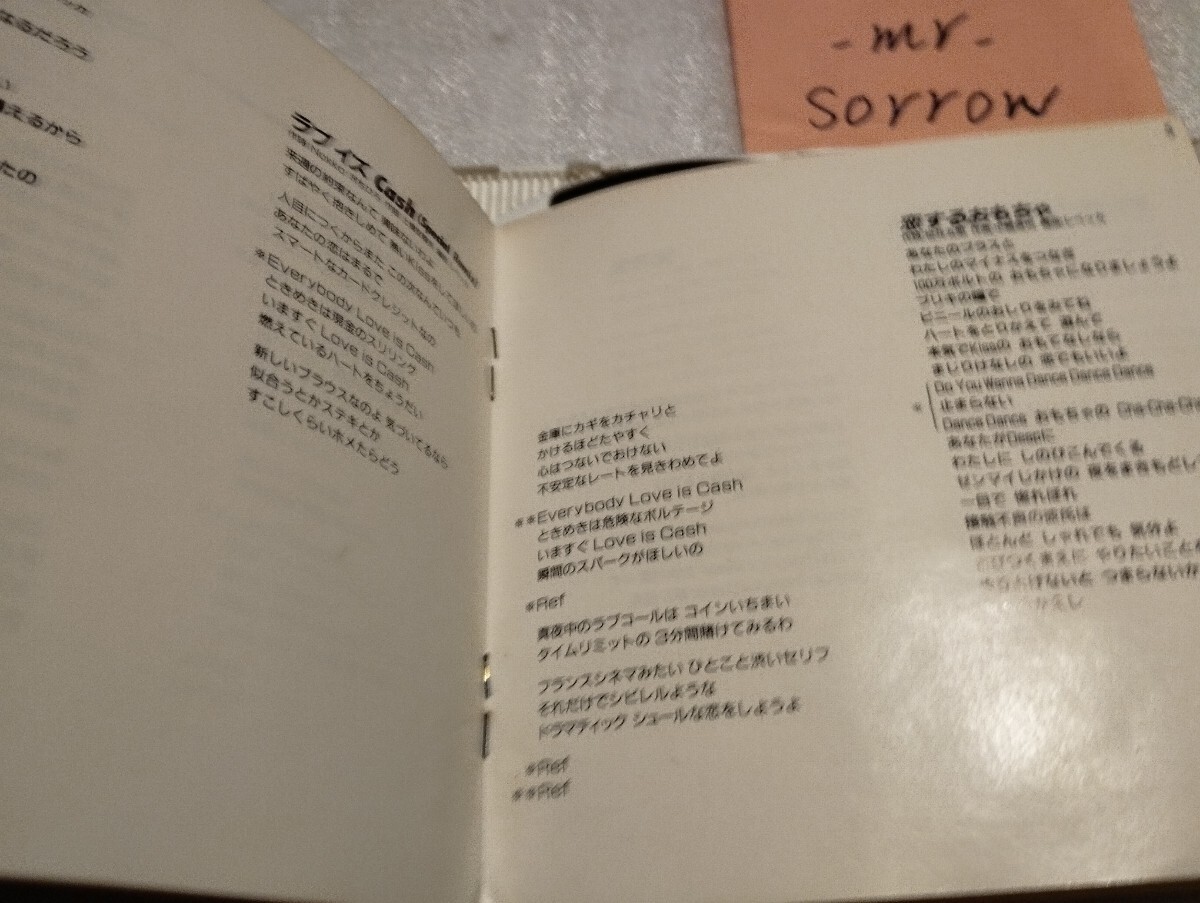 -mr-
sorrow
なるだろう
えるから
たの
ラブ イズ Cash (Special
来週の約束なんて 興味ないわよ
すばやく抱きしめて 熱いKissをして
人目につくからまた この次なんていつも
あなたの恋はまるで
スマートなカードクレジットなの
*Everybody Love is Cash
ときめきは現金のスリリング
いますぐ Love is Cash
燃えているハートをちょうだい
新しいブラウスなのよ 気づいてるなら
似合うとかステキとか
すこしくらいホメたらどう
金庫にカギをカチャリと
かけるほどたやすく
心はつないでおけない
不安定なレートを見きわめてよ
**Everybody Love is Cash
ときめきは危険なボルテージ
いますぐ Love is Cash
瞬間のスパークがほしいの
*Ref
真夜中のラブコールは コインいちまい
タイムリミットの 3分間賭けてみるわ
フランスシネマみたい ひとこと渋いセリフ
それだけでシビレルような
ドラマティック シュールな恋をしようよ
*Ref
**Ref
恋するおもちゃ
あなたのプラスと
わたしのマイナスをつなぎ
100万ボルトの おもちゃになりましょうよ
ブリキの瞳で
ビニールのおしりをみてね
ハートをとりかえて 遊んで
本気でKissの おもてなしなら
まじりけなしの 恋でもいいよ
Do You Wanna Dance Dance Dance
* 止まらない
Dance Dance おもちゃの Cha-Cha-Cha
あなたがDeepに
わたしに しのびこんでくる
ゼンマイじかけの 夜をまきもどし
一目で 惚れぼれ
接触不良の彼氏は
ほとんど しゃれでも 気分よ
さびつくまえに やりたいことが
つまらないか
かえし